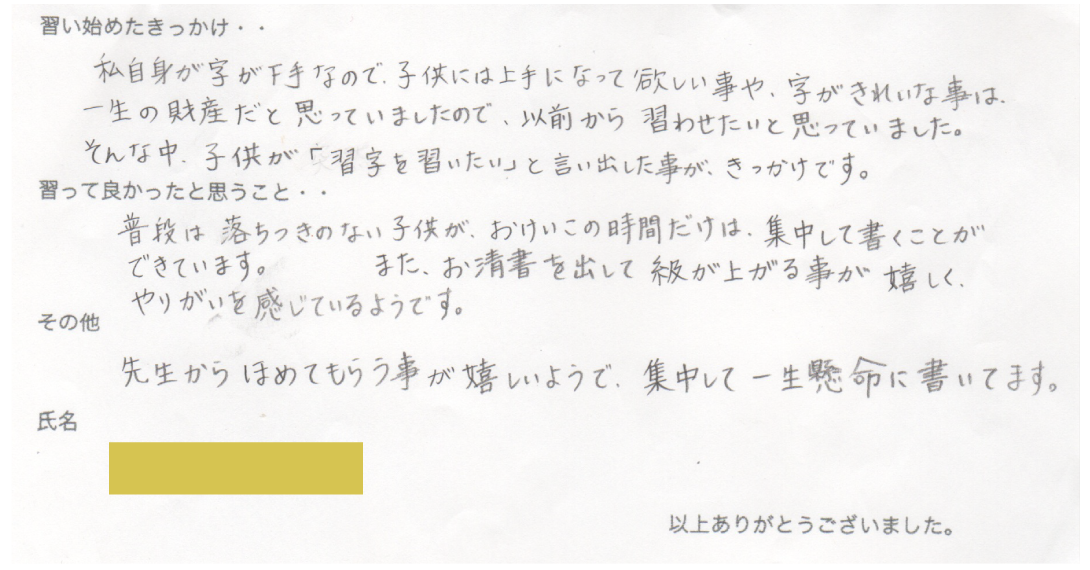 習い始めたきっかけ・・
私自身が字が下手なので、子供には上手になって欲しい事や、字がきれいな事は、
一生の財産だと思っていましたので、以前から習わせたいと思っていました。
そんな中、子供が「習字を習いたい」と言い出した事が、きっかけです。
習って良かったと思うこと・・
普段は落ちつきのない子供が、おけいこの時間だけは、集中して書くことが
できています。 また、お清書を出して級が上がる事が嬉しく、
やりがいを感じているようです。
その他
先生からほめてもらう事が嬉しいようで、集中して一生懸命に書いてます。
氏名
以上ありがとうございました。